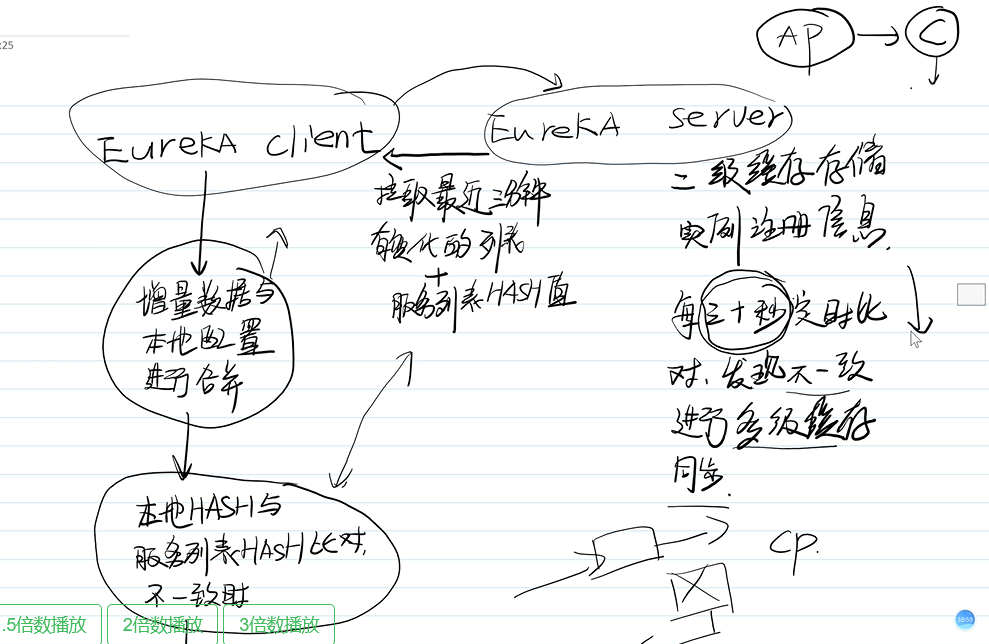 :25
AP
C
EurekA client
EurekA server
拉取最近三分钟
有变化的列表
+
服务列表HASH值
二级缓存存储
实例注册信息.
增量数据与
本地配置
进行合并
每三十秒定时比
对、发现不一致
进行多级缓存
同步.
本地HASH与
服务列表HASH比对,
不一致时
CP.
.5倍数播放
2倍数播放
3倍数播放
38:59